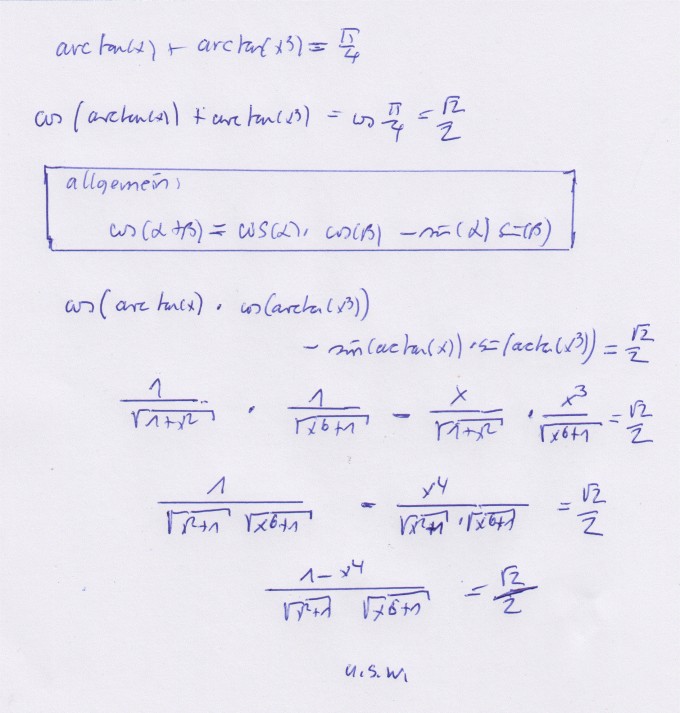 arctan(x) + arctan(x³) = π/4
cos(arctan(x)) + arctan(x³) = cos π/4 = √2/2
allgemein:
cos(α+β) = cos(α) · cos(β) - sin(α) sin(β)
cos(arctan(x) · cos(arctan(x³))
- sin(arctan(x)) · sin(arctan(x³)) = √2/2
1/√(1+x²) · 1/√(x⁶+1) - x/√(1+x²) · x³/√(x⁶+1) = √2/2
1/(√(x²+1) √(x⁶+1)) - x⁴/(√(x²+1) · √(x⁶+1)) = √2/2
(1-x⁴)/(√(x²+1) √(x⁶+1)) = √2/2
u.s.w.